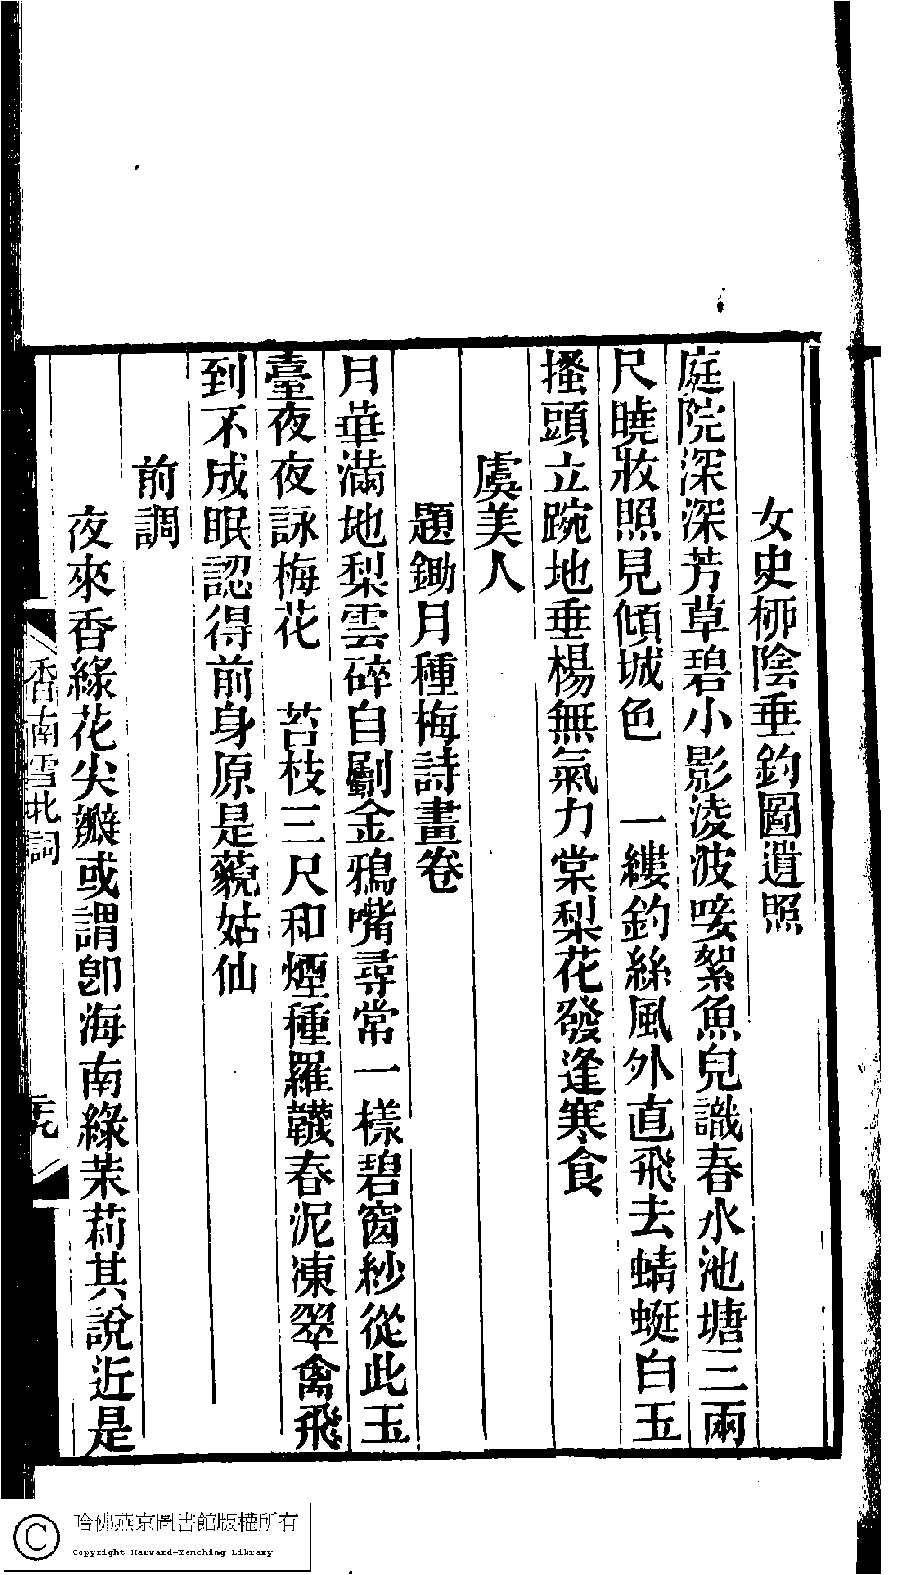 女史桺陰垂釣圖遺照
庭院深深芳草碧小影淩波唼絮魚兒識春水池塘三兩
尺曉妝照見傾城色　一縷釣絲風外直飛去蜻蜓白玉
搔頭立踠地垂楊無氣力棠梨花發逢寒食
虞美人
題鋤月種梅詩畫卷
月華滿地梨雲碎自劚金鴉嘴尋常一樣碧窗紗從此玉
臺夜夜詠梅花　苔枝三尺和煙種羅韈春泥凍翠禽飛
到不成眠認得前身原是藐姑仙
前調
夜來香綠花尖瓣或謂卽海南綠茉莉其說近是
香南雪北詞
哈佛燕京圖書館版權所有
Copyright Harvard-Yenching Library